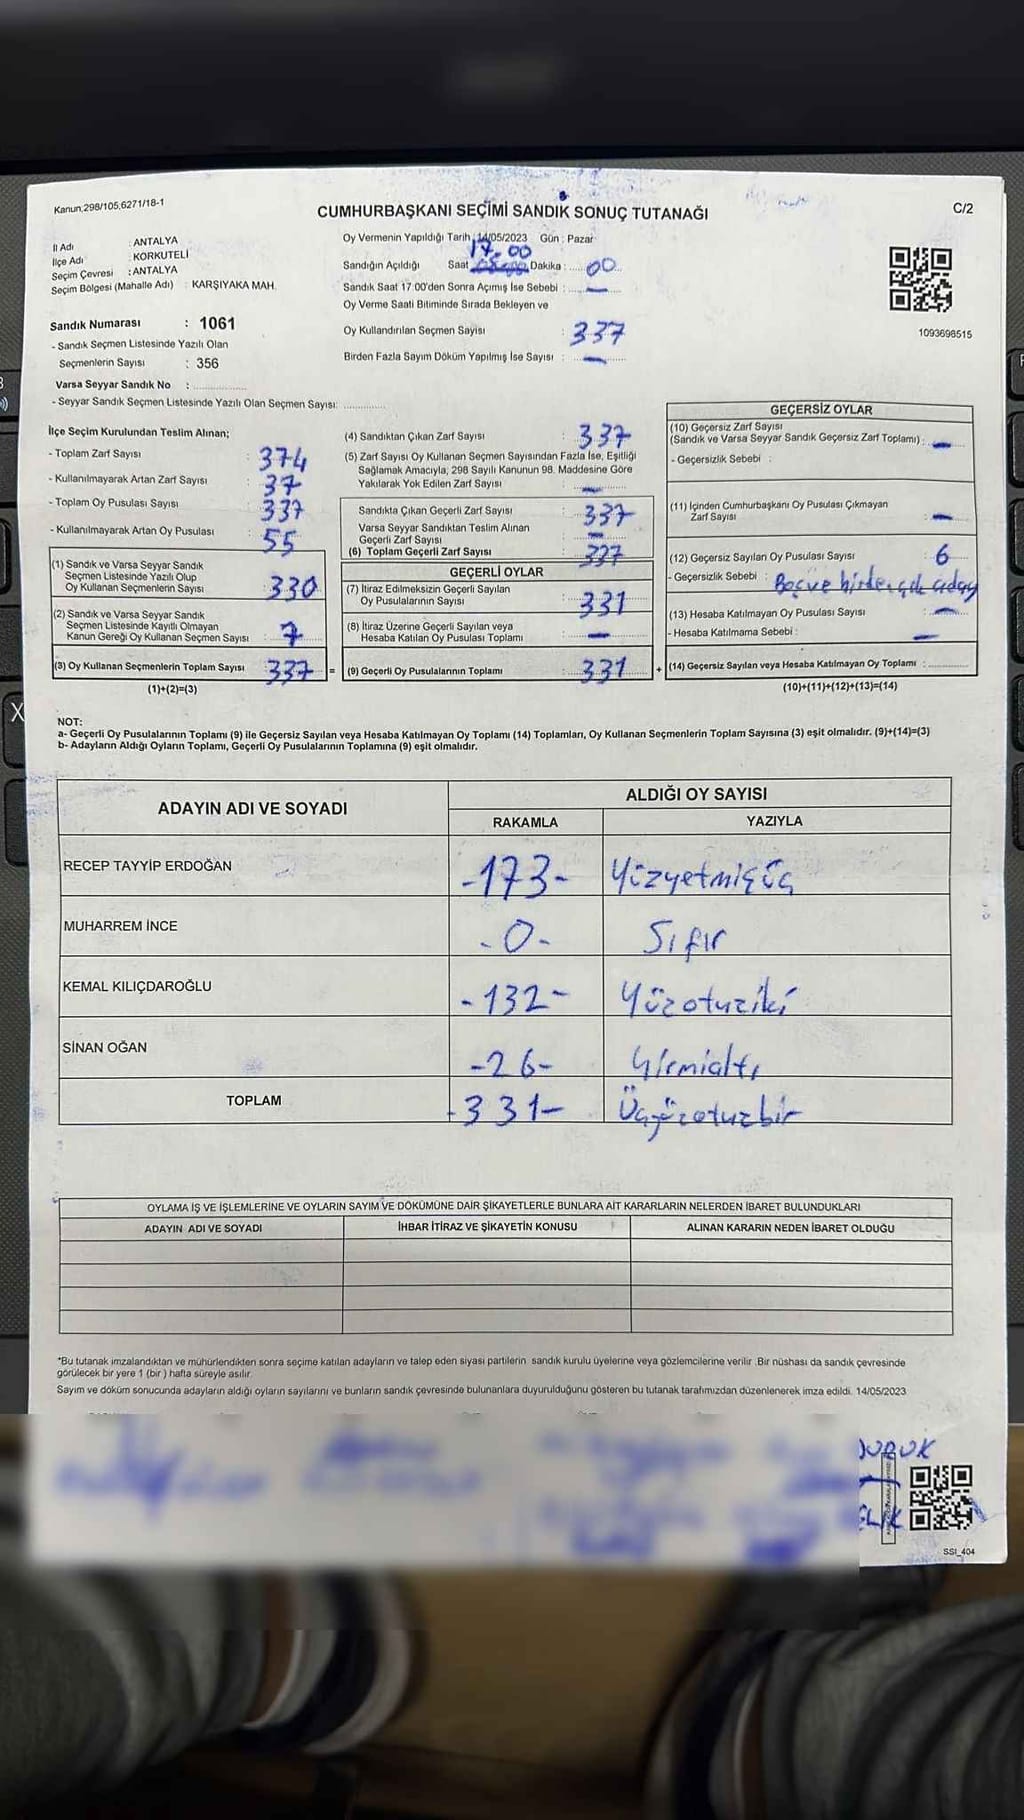 Kanun;298/105,6271/18-1
CUMHURBAŞKANI SEÇİMİ SANDIK SONUÇ TUTANAĞI
C/2
İl Adı : ANTALYA
İlçe Adı : KORKUTELİ
Seçim Çevresi : ANTALYA
Seçim Bölgesi (Mahalle Adı) : KARŞIYAKA MAH.
Sandık Numarası : 1061
- Sandık Seçmen Listesinde Yazılı Olan
Seçmenlerin Sayısı : 356
Varsa Seyyar Sandık No : ..............
- Seyyar Sandık Seçmen Listesinde Yazılı Olan Seçmen Sayısı: ...........
Oy Vermenin Yapıldığı Tarih : 14/05/2023 Gün : Pazar
17.00
Sandığın Açıldığı Saat Dakika : 00
Sandık Saat 17:00'den Sonra Açımış İse Sebebi : —
Oy Verme Saati Bitiminde Sırada Bekleyen ve
Oy Kullandırılan Seçmen Sayısı : 337
Birden Fazla Sayım Döküm Yapılmış İse Sayısı : —
1093698515
İlçe Seçim Kurulundan Teslim Alınan;
- Toplam Zarf Sayısı : 374
- Kullanılmayarak Artan Zarf Sayısı : 37
- Toplam Oy Pusulası Sayısı : 337
- Kullanılmayarak Artan Oy Pusulası : 55
(1) Sandık ve Varsa Seyyar Sandık
Seçmen Listesinde Yazılı Olup
Oy Kullanan Seçmenlerin Sayısı : 330
(2) Sandık ve Varsa Seyyar Sandık
Seçmen Listesinde Kayıtlı Olmayan
Kanun Gereği Oy Kullanan Seçmen Sayısı : 7
(3) Oy Kullanan Seçmenlerin Toplam Sayısı : 337 =
(1)+(2)=(3)
(4) Sandıktan Çıkan Zarf Sayısı : 337
(5) Zarf Sayısı Oy Kullanan Seçmen Sayısından Fazla İse, Eşitliği
Sağlamak Amacıyla, 298 Sayılı Kanunun 98. Maddesine Göre
Yakılarak Yok Edilen Zarf Sayısı : —
Sandıkta Çıkan Geçerli Zarf Sayısı : 337
Varsa Seyyar Sandıktan Teslim Alınan
Geçerli Zarf Sayısı : —
(6) Toplam Geçerli Zarf Sayısı : 337
GEÇERLİ OYLAR
(7) İtiraz Edilmeksizin Geçerli Sayılan
Oy Pusulalarının Sayısı : 331
(8) İtiraz Üzerine Geçerli Sayılan veya
Hesaba Katılan Oy Pusulası Toplamı : —
(9) Geçerli Oy Pusulalarının Toplamı : 331 +
GEÇERSİZ OYLAR
(10) Geçersiz Zarf Sayısı
(Sandık ve Varsa Seyyar Sandık Geçersiz Zarf Toplamı) : —
- Geçersizlik Sebebi :
(11) İçinden Cumhurbaşkanı Oy Pusulası Çıkmayan
Zarf Sayısı : —
(12) Geçersiz Sayılan Oy Pusulası Sayısı : 6
- Geçersizlik Sebebi : Boş ve birden çok aday
(13) Hesaba Katılmayan Oy Pusulası Sayısı : —
- Hesaba Katılmama Sebebi : —
(14) Geçersiz Sayılan veya Hesaba Katılmayan Oy Toplamı : ...........
(10)+(11)+(12)+(13)=(14)
NOT:
a- Geçerli Oy Pusulalarının Toplamı (9) ile Geçersiz Sayılan veya Hesaba Katılmayan Oy Toplamı (14) Toplamları, Oy Kullanan Seçmenlerin Toplam Sayısına (3) eşit olmalıdır. (9)+(14)=(3)
b- Adayların Aldığı Oyların Toplamı, Geçerli Oy Pusulalarının Toplamına (9) eşit olmalıdır.
ADAYIN ADI VE SOYADI ALDIĞI OY SAYISI
RAKAMLA YAZIYLA
RECEP TAYYİP ERDOĞAN -173- Yüzyetmişüç
MUHARREM İNCE -0- Sıfır
KEMAL KILIÇDAROĞLU -132- Yüzotuziki
SİNAN OĞAN -26- Yirmialtı
TOPLAM -331- Üçyüzotuzbir
OYLAMA İŞ VE İŞLEMLERİNE VE OYLARIN SAYIM VE DÖKÜMÜNE DAİR ŞİKAYETLERLE BUNLARA AİT KARARLARIN NELERDEN İBARET BULUNDUKLARI
ADAYIN ADI VE SOYADI İHBAR İTİRAZ VE ŞİKAYETİN KONUSU ALINAN KARARIN NEDEN İBARET OLDUĞU
*Bu tutanak imzalandıktan ve mühürlendikten sonra seçime katılan adayların ve talep eden siyasi partilerin sandık kurulu üyelerine veya gözlemcilerine verilir .Bir nüshası da sandık çevresinde
görülecek bir yere 1 (bir ) hafta süreyle asılır.
Sayım ve döküm sonucunda adayların aldığı oyların sayılarını ve bunların sandık çevresinde bulunanlara duyurulduğunu gösteren bu tutanak tarafımızdan düzenlenerek imza edildi. 14/05/2023
SSI_404